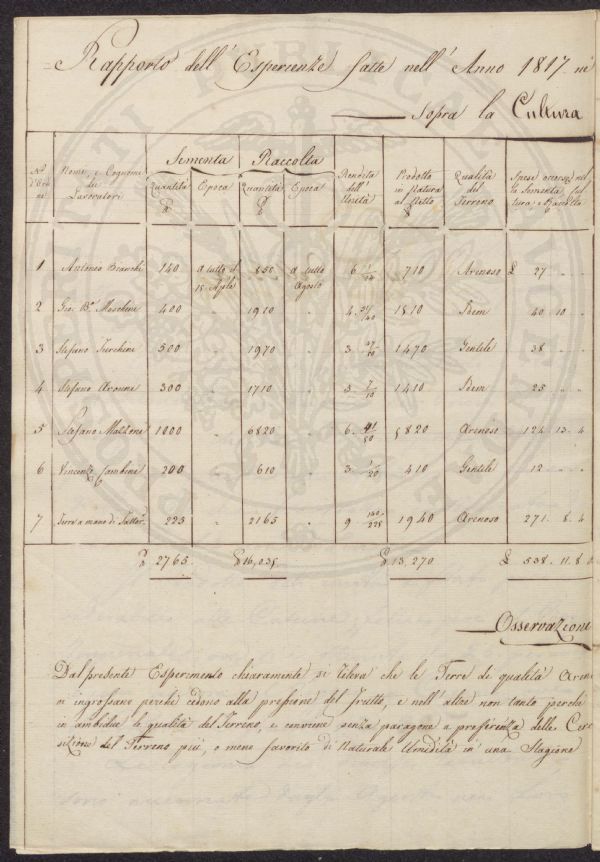 = Rapporto dell' Esperienze fatte nell' Anno 1817 ne
sopra la Cultura
N.º Nomi, e Cognomi dei Lavoratori Sementa Raccolta Rendita dell' Unità Prodotto in Natura al Netto Qualità del Terreno Spese occorse nel
Quantità Epoca Quantità Epoca
1 Antonio Bianchi 140 a tutto il 15 Aple 850 a tutto Agosto 6 1/14 710 Arenoso £ 27 " "
2 Gio. Ba. Moschini 400 " 1910 " 4. 31/40 1510 Idem 40 10 "
3 Stefano Turchini 500 " 1970 " 3. 47/50 1470 Gentile 38 " "
4 Stefano 300 " 1710 1410 Idem 25 " "
5 Stefano 1000 " 6820 " 6. 41/50 5820 Arenoso 124 13 4
6 Vincenzo 200 " 610 " 3 1/20 410 Gentile 12 " "
7 Terra a mano di Fattor. 225 " 2165 " 9 140/225 1940 Arenoso 271 8 4
2765 16,035 13,270 £ 538 11 8
Osservazione
Dal presente Esperimento chiaramente si rileva che le Terre di qualità Aren
si ingrossano perché cedono alla pressione del frutto, e nell' altre non tanto perché
in ambidue le qualità del Terreno, e conviene senza paragone a preferenza delle
sizione del Terreno più, o meno favorito di Naturale Umidità in una Stagione